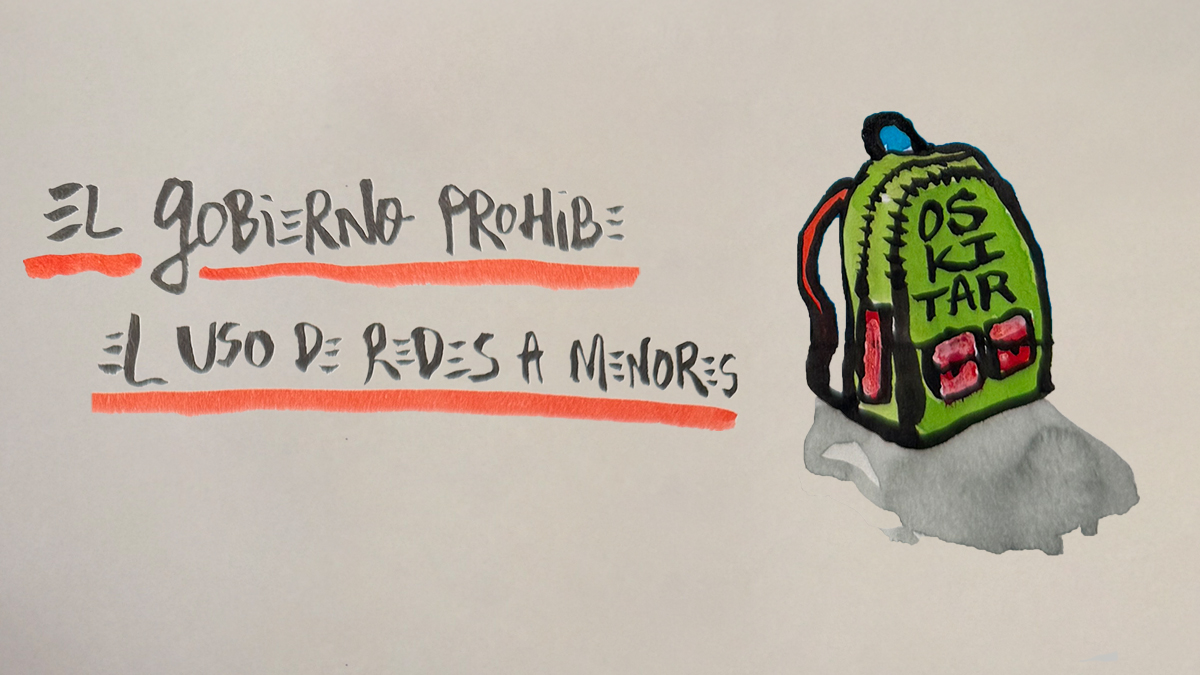 EL gOBiERNO PROHiBE
EL USO DE REDES A MENORES
OS
KI
TAR